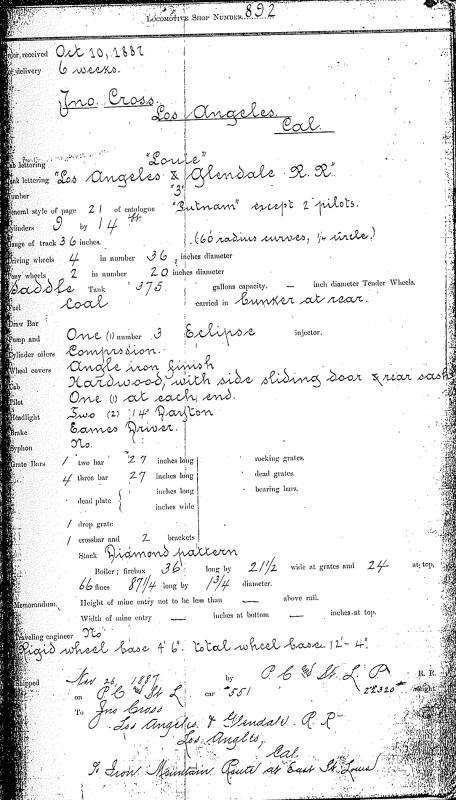 LOCOMOTIVE SHOP NUMBER 892
received Oct 10, 1887
delivery 6 weeks.
Jno. Cross.
Los Angeles.
Cal.
lettering "Louie"
lettering "Los Angeles & Glendale R. R."
umber "3"
eneral style of page 21 of catalogue "Putnam" except 2 pilots.
linders 9 by 14
auge of track 36 inches. (60 radius curves, ¼ circle.)
riving wheels 4 in number 36 inches diameter
ony wheels 2 in number 20 inches diameter
Saddle Tank 375 gallons capacity. — inch diameter Tender Wheels.
Fuel Coal carried in bunker at rear.
Draw Bar
Pump and One (1) number 3 Eclipse injector.
Cylinder oilers Comprssion.
Wheel covers Angle iron finish
Cab Hardwood, with side sliding door & rear sash
Pilot One (1) at each end.
Headlight Two (2) 14" Dayton
Brake Eames Driver.
Syphon No.
Grate Bars 1 two bar 27 inches long rocking grates.
4 three bar 27 inches long dead grates.
dead plate { inches long bearing bars.
inches wide
1 drop grate
1 crossbar and 2 brackets
Stack Diamond pattern
Boiler; firebox 36 long by 21½ wide at grates and 24 at top,
66 flues 87¼ long by 1¾ diameter.
Memorandum, Height of mine entry not to be less than — above rail.
Width of mine entry — inches at bottom — inches at top.
Traveling engineer No
Rigid wheel base 4' 6". total wheel base 12'- 4".
hipped Nov 26, 1887 by P C & St. L R. R.
on P C & St L car 551 22320 weight.
To Jno Cross
Los Angeles & Glendale R. R
Los Angles,
Cal.
To Iron Mountain Route at East St. Louis